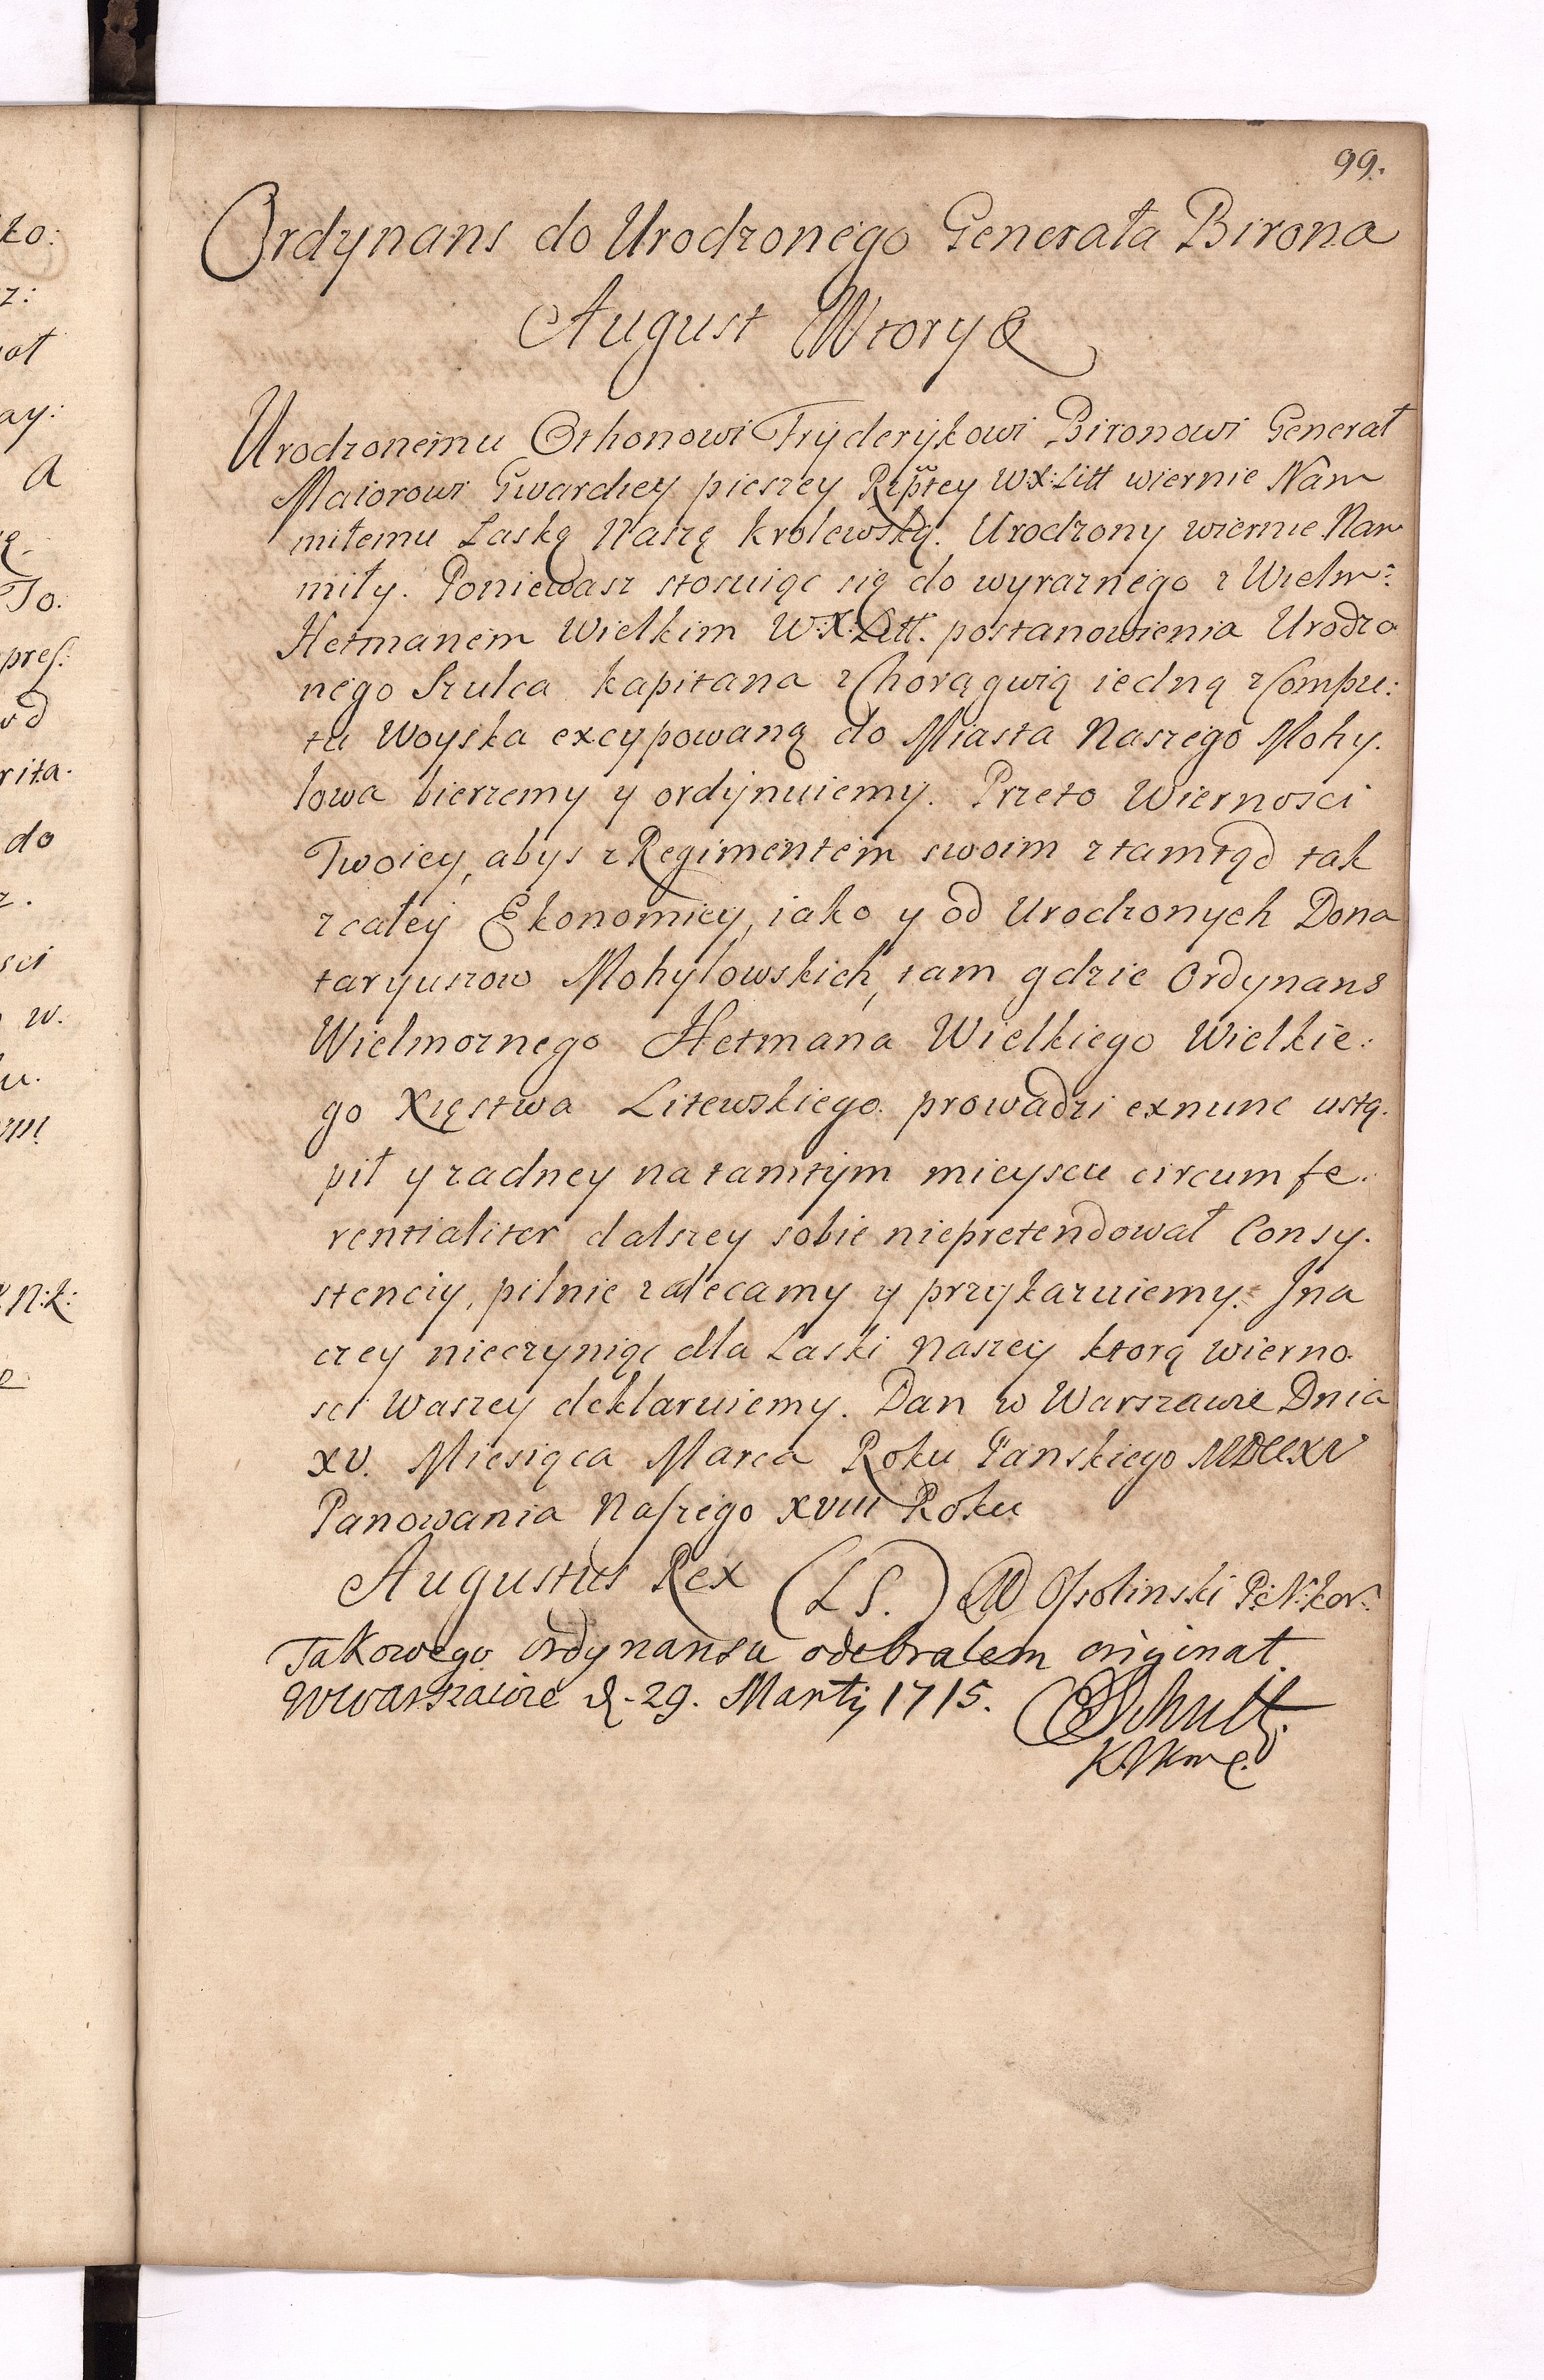 99.
Ordynans do Urodzonego Generała Birona
August Wtory &
Urodzonemu Othonowi Fryderykowi Bironowi Generał
Maiorowi Gwardzey pieszey Rzptey W.X. Litt wiernie Nam
miłemu Laskę Naszę Krolewską. Urodzony wiernie Nam
miły. Poniewasz stosuiąc się do wyraznego z Wielm:
Hetmanem Wielkim W:X:Litt. postanowienia Urodzo
nego Szulca Kapitana z Chorągwią iedną z Compu:
tu Woyska excypowaną do Miasta Naszego Mohy.
lowa bierzemy y ordynuiemy. Przeto Wiernosci
Twoiey, abys z Regimentem swoim ztamtąd tak
z całey Ekonomiey, iako y od Urodzonych Dona
taryuszow Mohylowskich, tam gdzie Ordynans
Wielmoznego Hetmana Wielkiego Wielkie:
go Xięstwa Litewskiego prowadzi exnunc ustą.
pił y zadney na tamtym mieyscu circumfe.
rentialiter dalszey sobie niepretendował Consy.
stenciy, pilnie zalecamy y przykazuiemy. Jna
czey nieczyniąc dla Laski Naszey ktorą wierno.
sci Waszey deklaruiemy. Dan w Warszawie Dnia
XV. Miesiąca Marca Roku Panskiego MDCCXV
Panowania Naszego XVIII Roku
Augustus Rex (L S.) M Ossolinski P: N: Kor:
Takowego ordynansu odebralem originał.
W Warszawie d. 29. Marty 1715. Schultz.